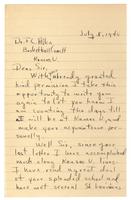 July 8, 1940
Dr. F.C. Allen
Basketball Coach
Kansas U.
Dear Sir,
With already granted
kind permission I take this
opportunity to write you
again to let you know I
am counting the days till
I will be at Kansas U. and
make your acquaintance per-
sonally.
Well Sir, since your
last letter I have accomplished
much along Kansas U. lines.
I have read a great deal
of your splendid school and
have met several